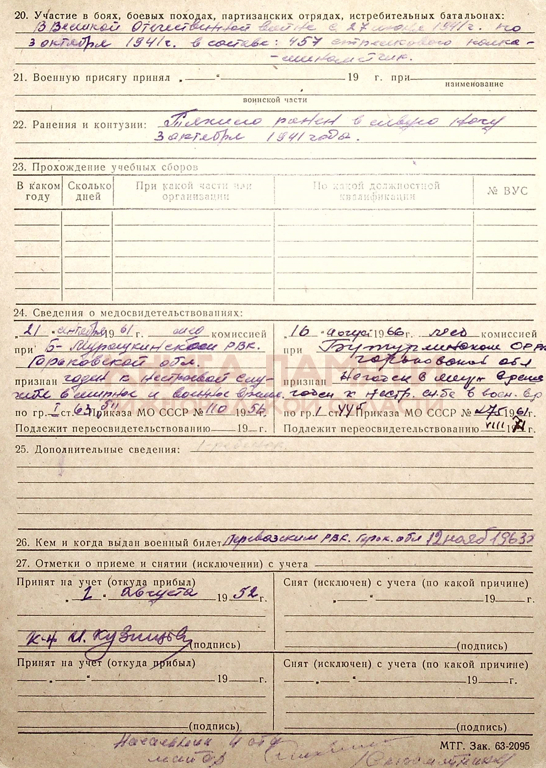 20. Участие в боях, боевых походах, партизанских отрядах, истребительных батальонах:
В Великой Отечественной войне с 27 июля 1941г. по
3 октября 1941г. в составе: 457 стрелкового полка-
-минометчик.
21. Военную присягу принял „ “ 19 г. при
наименование
воинской части
22. Ранения и контузии: Тяжело ранен в левую ногу
3 октября 1941 года.
23. Прохождение учебных сборов
В каком году Сколько дней При какой части или организации По какой должностной квалификации № ВУС
24. Сведения о медосвидетельствованиях:
„21 “ октября 1961 г. комиссией
при Б-Мурашкинском РВК.
Горьковской обл.
признан годен к нестроевой слу-
жбе в мирное и военное время
по гр. I ст. 63 Приказа МО СССР № 110 1954
Подлежит переосвидетельствованию 19 г.
„16 “ август 1966 г. комиссией
при Бутурлинском ОРВК
Горьковской обл
признан Негоден в мирн время
годен к нестр. сл-бе в воен. вр
по гр. I ст. Приказа МО СССР № 275 1961
Подлежит переосвидетельствованию VIII 19 г.
КНИГА ПАМЯТИ
НИЖЕГОРОДСКОЙ ОБЛАСТИ
25. Дополнительные сведения:
26. Кем и когда выдан военный билет Перевозским РВК. Горьк. обл 12 нояб 1963г
27. Отметки о приеме и снятии (исключении) с учета
Принят на учет (откуда прибыл)
„1 “ Августа 1952 г.
К-н И. Кузнецов
(подпись)
Снят (исключен) с учета (по какой причине)
„ “ 19 г.
(подпись)
Принят на учет (откуда прибыл)
„ “ 19 г.
(подпись)
Снят (исключен) с учета (по какой причине)
„ “ 19 г.
(подпись)
МТГ. Зак. 63-2095
Начальник 4 отд
майор